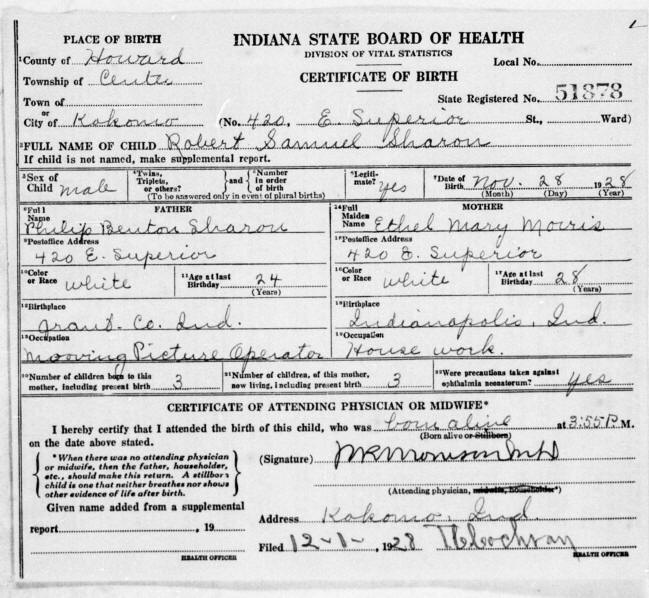 PLACE OF BIRTH
INDIANA STATE BOARD OF HEALTH
DIVISION OF VITAL STATISTICS
CERTIFICATE OF BIRTH
County of Howard
Local No.
Township of Center
Town of
State Registered No. 51878
or
City of Kokomo (No. 420, E. Superior St., Ward)
FULL NAME OF CHILD Robert Samuel Sharon
If child is not named, make supplemental report.
3Sex of Child male
4Twins, Triplets, or others? } and { 5Number in order of birth
(To be answered only in event of plural births)
6Legiti- mate? yes
7Date of Birth Nov. 28 1928
(Month) (Day) (Year)
FATHER
8Full Name Philip Benton Sharon
9Postoffice Address
420 E. Superior
10Color or Race White
11Age at last Birthday 24
(Years)
12Birthplace
Grant. Co. Ind.
13Occupation
Mooving Picture Operator
MOTHER
14Full Maiden Name Ethel Mary Morris
15Postoffice Address
420 E. Superior
16Color or Race White
17Age at last Birthday 28
(Years)
18Birthplace
Indianapolis, Ind.
19Occupation
House work.
20Number of children born to this mother, including present birth 3
21Number of children, of this mother, now living, including present birth 3
22Were precautions taken against ophthalmia neonatorum? yes
CERTIFICATE OF ATTENDING PHYSICIAN OR MIDWIFE*
I hereby certify that I attended the birth of this child, who was born alive at 3:55 P M.
(Born alive or Stillborn)
on the date above stated.
*When there was no attending physician
or midwife, then the father, householder,
etc., should make this return. A stillborn
child is one that neither breathes nor shows
other evidence of life after birth.
(Signature) Morrison MD
(Attending physician, midwife, householder*)
Given name added from a supplemental
report , 19
HEALTH OFFICER
Address Kokomo, Ind.
Filed 12-1-, 1928 Cochran
HEALTH OFFICER